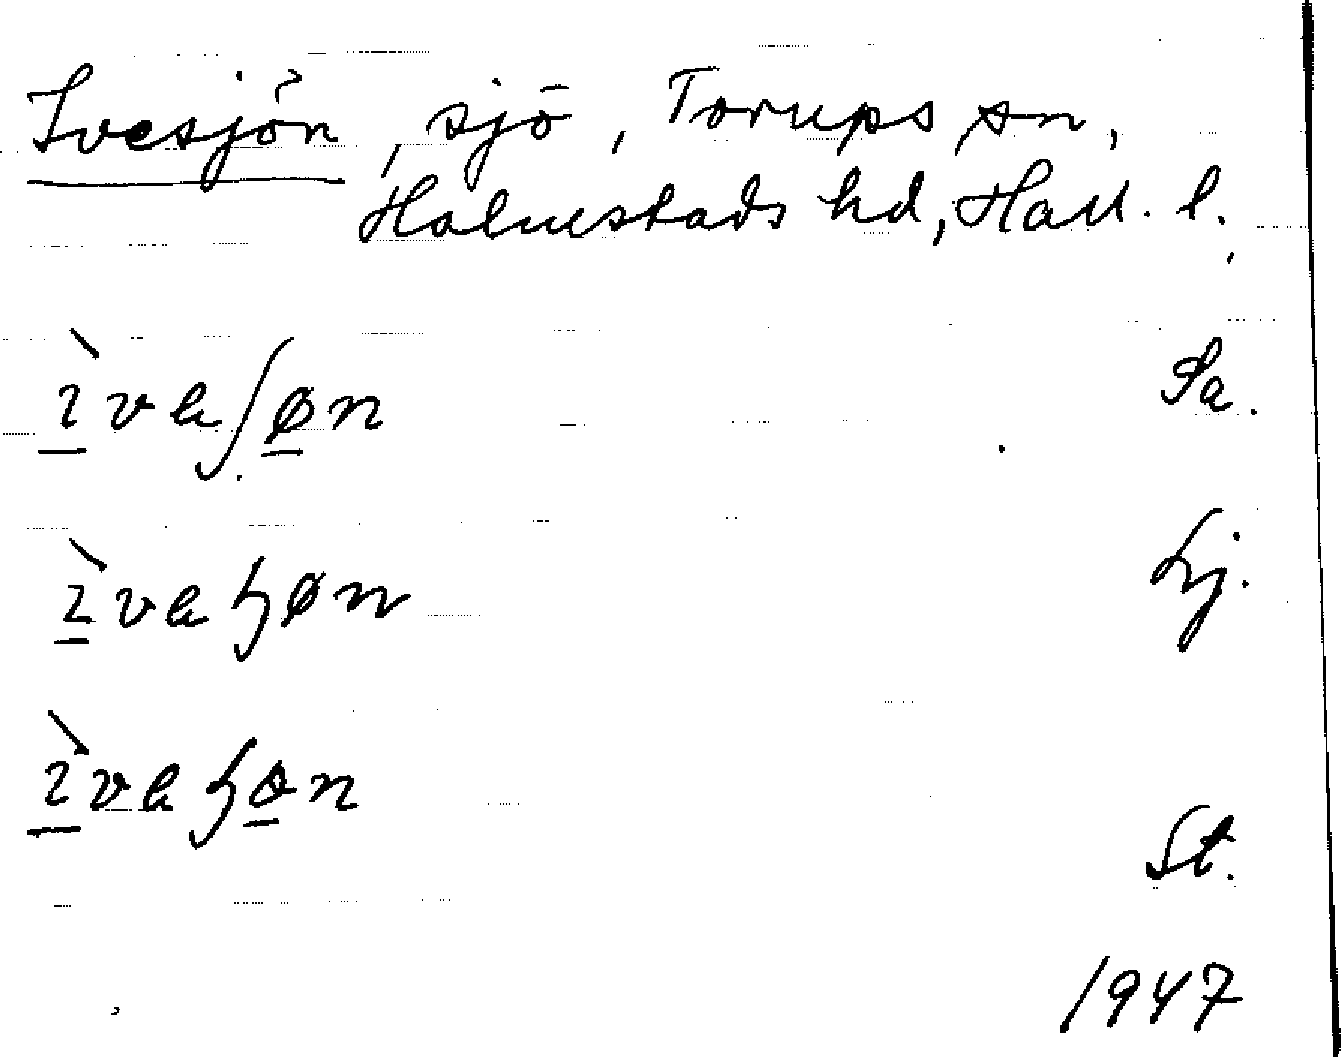 Ivesjön, sjö, Torups sn,
Halmstads hd, Hall. l.
ìvaʃøn Sa.
ìvaɧøn Lj.
ìvaɧøn St.
1947